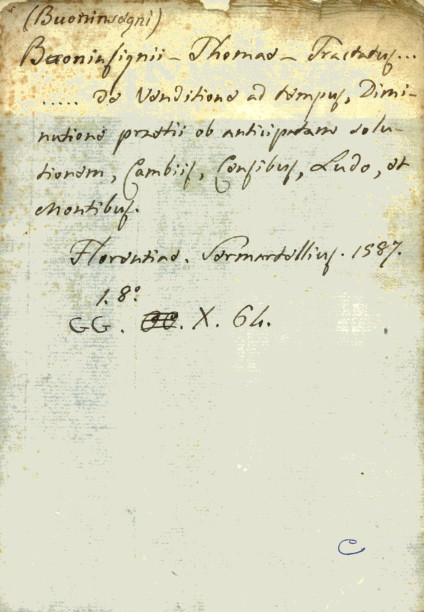 (Buoninsegni)
Buoninsignii - Thomae - Tractatus...
..... de Venditione ad tempus, Dimi-
nutione praetii ob anticipatam solu-
tionem, Cambiis, Censibus, Ludo, et
Montibus.
Florentiae. Sermartellius. 1587.
1. 8.º
GG. X. 64.
C